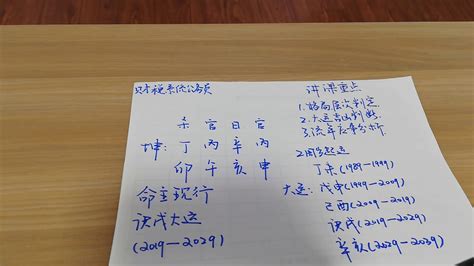 财税系统公务员
杀 官 日 官
坤: 丁 丙 辛 丙
卯 午 亥 申
命主现行
庚戌大运
(2019—2029)
讲课重点
1.格局层次判定
2.大运吉凶判断
3.流年应事分析
2周岁起运
丁未(1989-1999)
大运: 戊申(1999-2009)
己酉(2009-2019)
庚戌(2019-2029)
辛亥(2029-2039)